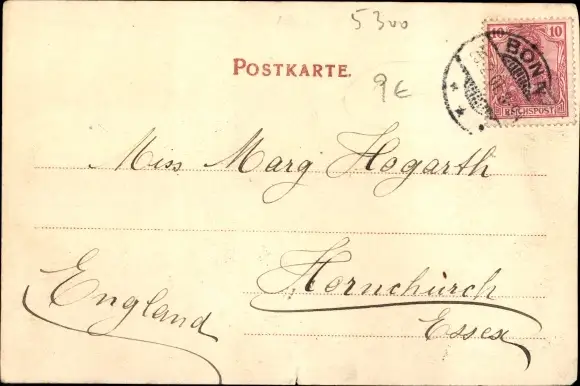 5300
POSTKARTE.
9€
10 10
REICHSPOST
BONN
Miss Marg Hogarth
Hornchurch
England
Essex